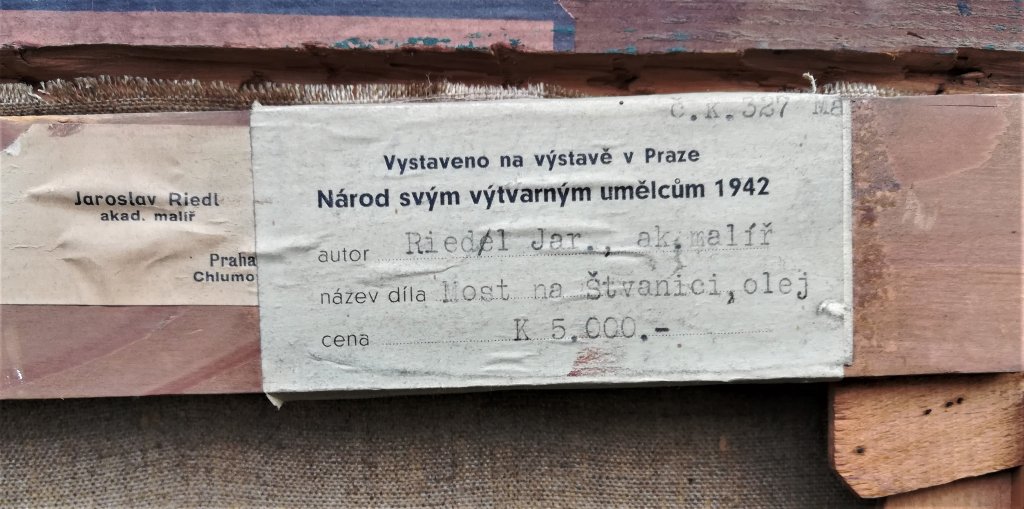 Jaroslav Riedl
akad. malíř
Praha
Chlumo
č.K.327 Ma
Vystaveno na výstavě v Praze
Národ svým výtvarným umělcům 1942
autor Riedel Jar., ak.malíř
název díla Most na Štvanici,olej
cena K 5.000.-